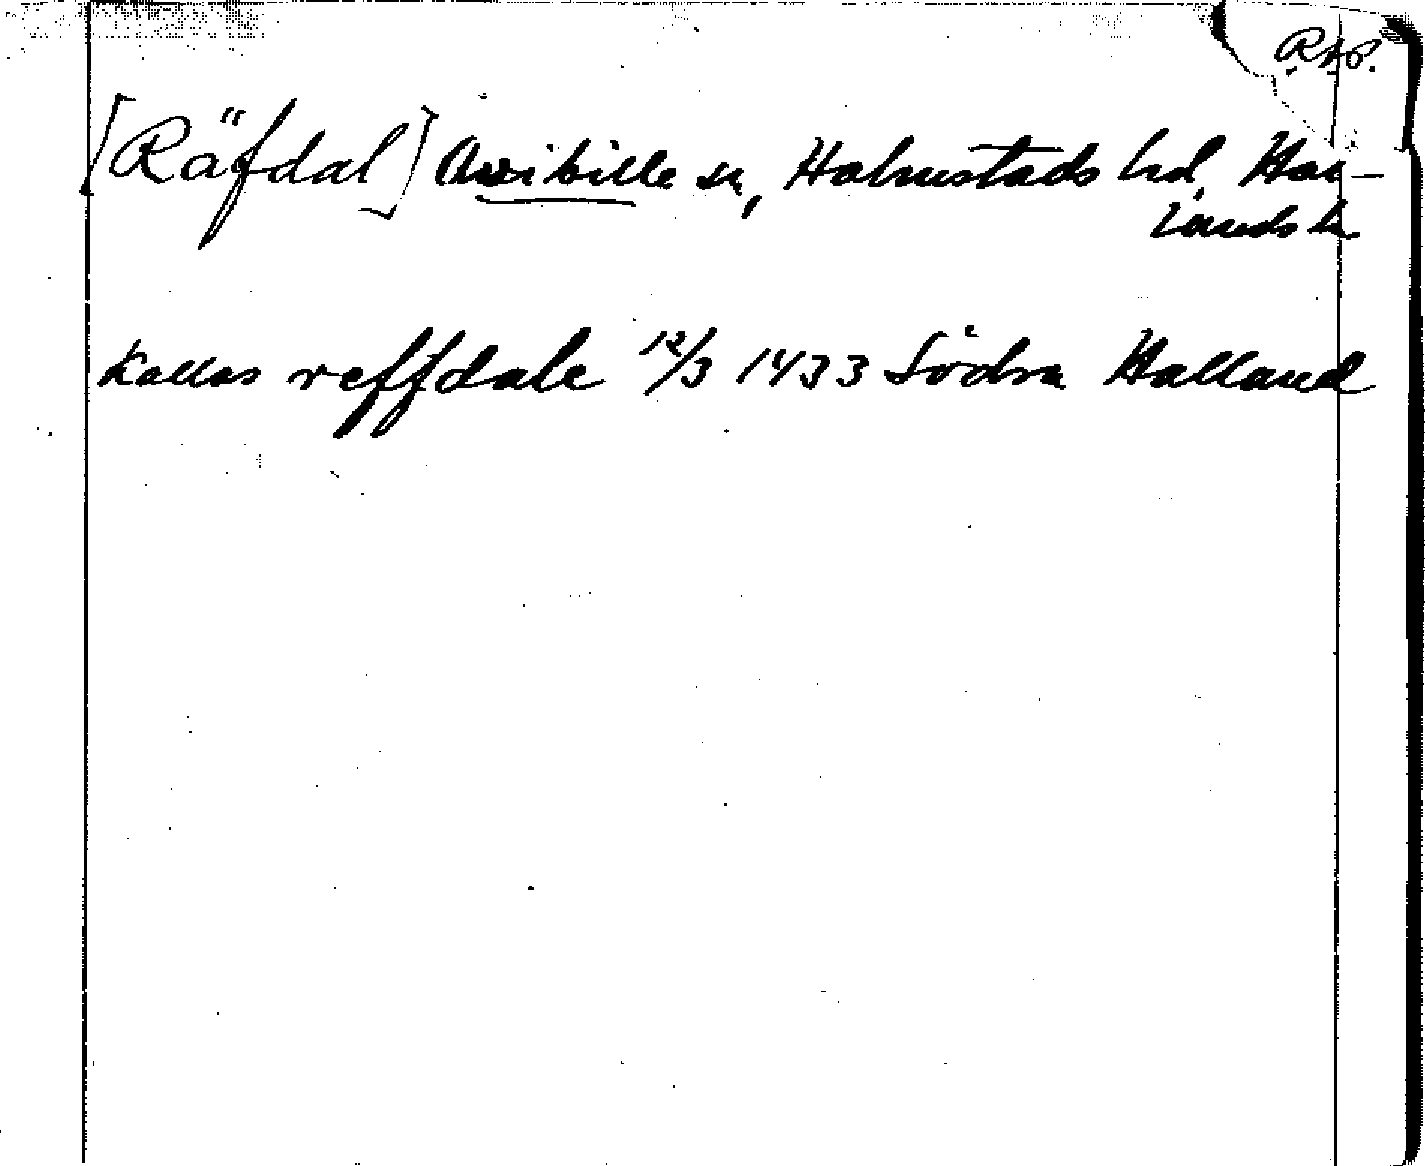 [Räfdal] Kvibille sn, Halmstads hd, Hal-
lands l.
kallas reffdale 12/3 1433 Södra Halland